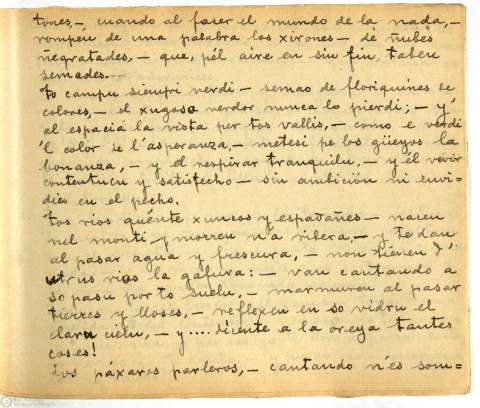 tones,- cuando al facer el mundo de la nada,-
rompen de una palabra los xirones - de ñubes
ñegratades, - que, pél aire en sin fin, taben
semades.-
To campu siempri verdi - semao de floriquines se
colores, - el xugoso verdor nunca lo pierdi; - y'
al espaciá la vista per tos vallis, - como e verdi
'l color se l'asperanza, - metesi pe los güeyos la
bonanza, - y el respirar tranquilu, - y él vivir
contentucu y satisfecho - sin ambición ni envi=
dies en el pecho.
Tos rios quénte xuncos y espadañes - nacen
nel monti y morren n'a ribera, - y te dan
al pasar agua y frescura, - non tienen d'
utrus rios la gafura: - van cantando a
so pasu por to suelu, - marmuren al pasar
tierres y lloses, - reflexen en so vidru el
claru cielu, - y.... dicente a la oreya tantes
coses!
Los páxaros parleros, - cantando n'es som=